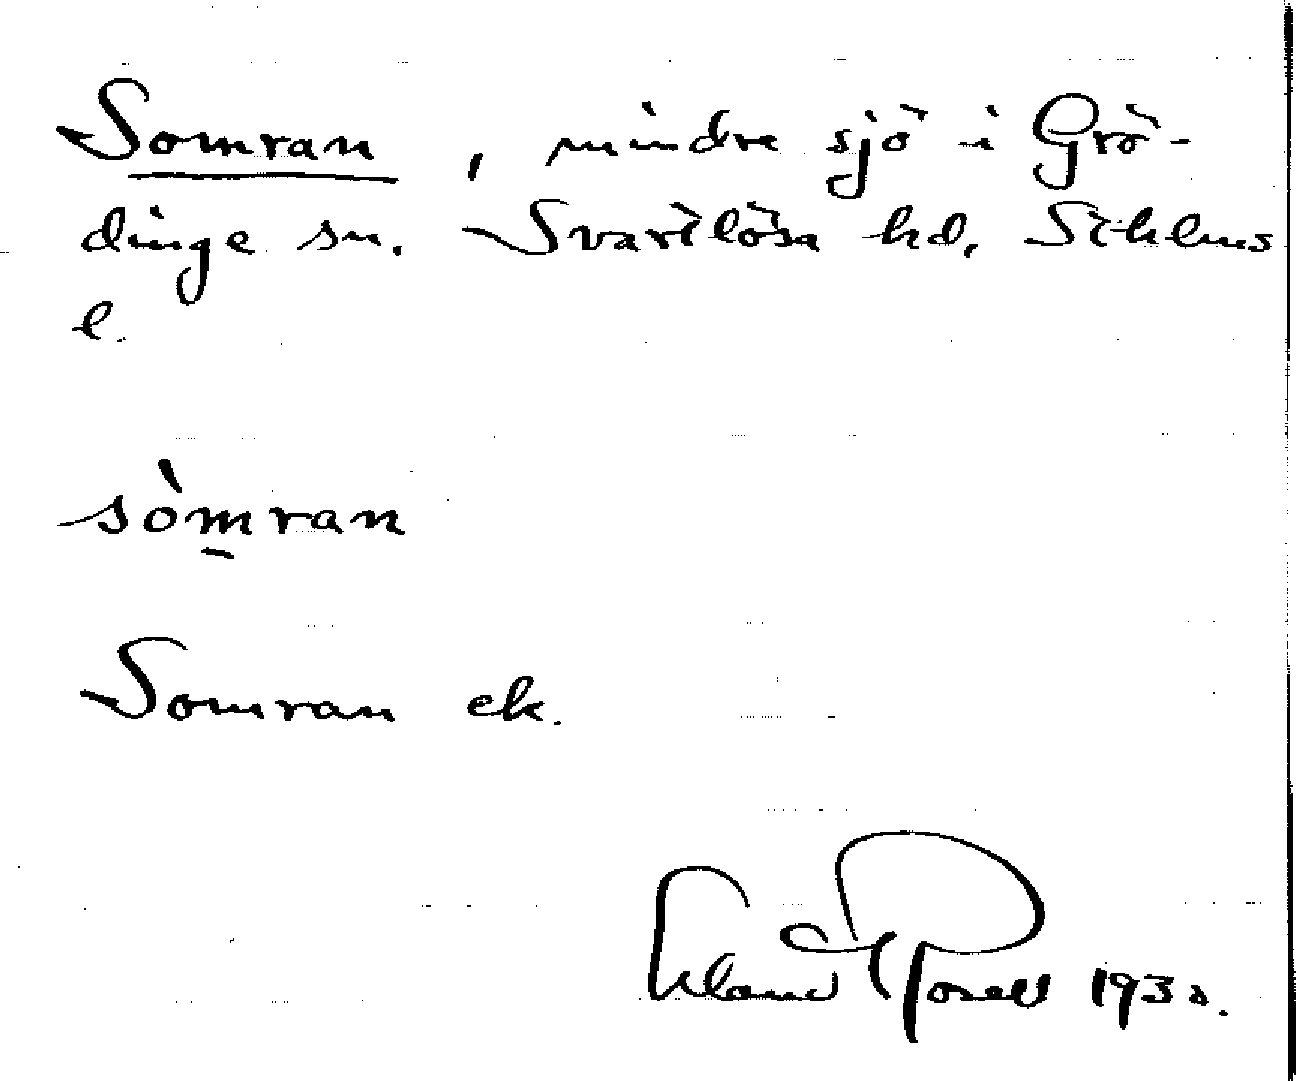 Somran, mindre sjö i Grö-
dinge sn. Svartlösa hd, Sthlms
l.
sòmran
Somran ek.
Erland Rosell 193